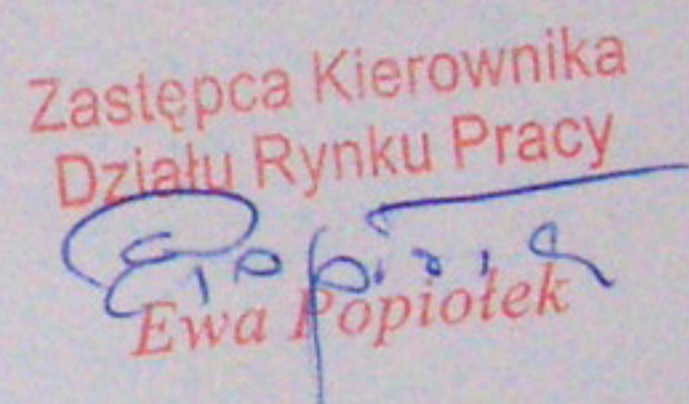 Zastępca Kierownika
Działu Rynku Pracy
Ewa Popiołek